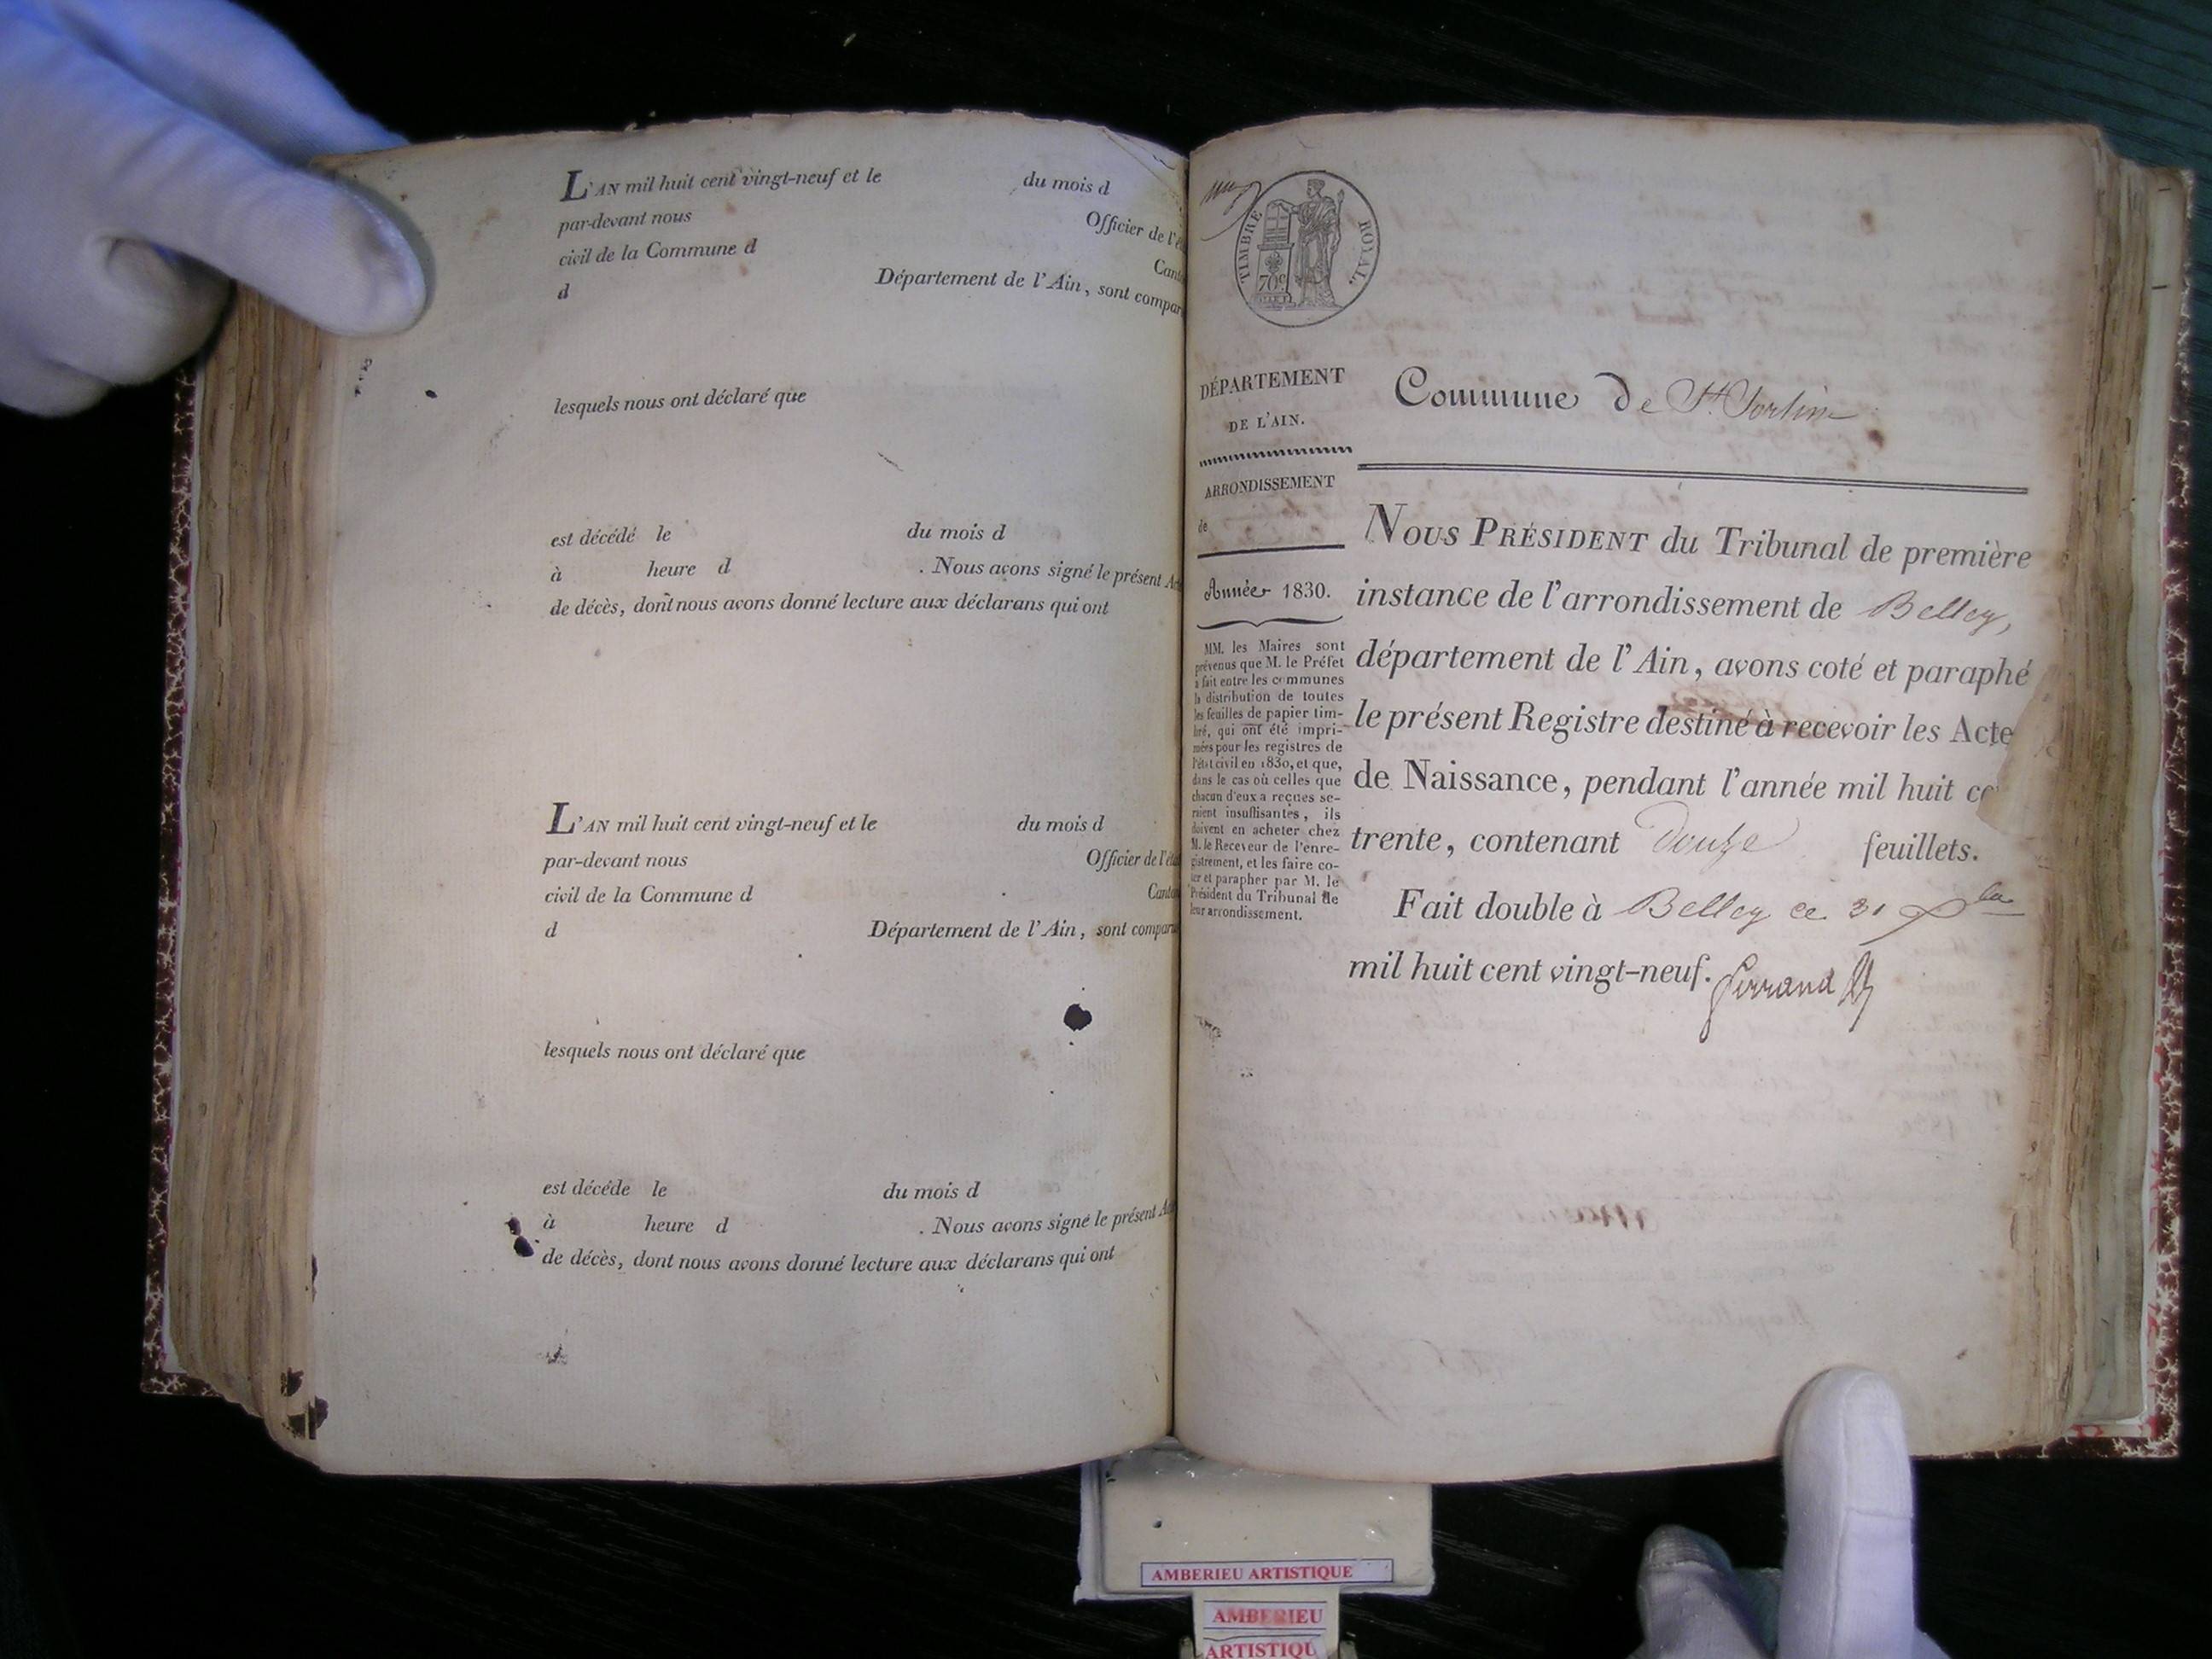 L'AN mil huit cent vingt-neuf et le du mois d
par-devant nous Officier de l'é
civil de la Commune d Cant
d Département de l'Ain, sont compar
lesquels nous ont déclaré que
est décédé le du mois d
à heure d . Nous avons signé le présent Ac
de décès, dont nous avons donné lecture aux déclarans qui ont
L'AN mil huit cent vingt-neuf et le du mois d
par-devant nous Officier de l'éta
civil de la Commune d Canto
d Département de l'Ain, sont compar
lesquels nous ont déclaré que
est décédé le du mois d
à heure d . Nous avons signé le présent Ac
de décès, dont nous avons donné lecture aux déclarans qui ont
TIMBRE ROYAL.
70c
DÉPARTEMENT
DE L'AIN.
ARRONDISSEMENT
de
Année 1830.
MM. les Maires sont
prévenus que M. le Préfet
a fait entre les communes
la distribution de toutes
les feuilles de papier tim-
bré, qui ont été impri-
mées pour les registres de
l'état civil en 1830, et que,
dans le cas où celles que
chacun d'eux a reçues se-
raient insuffisantes, ils
doivent en acheter chez
M. le Receveur de l'enre-
gistrement, et les faire co-
ter et parapher par M. le
Président du Tribunal de
leur arrondissement.
Commune De St. Sorlin
NOUS PRÉSIDENT du Tribunal de première
instance de l'arrondissement de Belley,
département de l'Ain, avons coté et paraphé
le présent Registre destiné à recevoir les Acte
de Naissance, pendant l'année mil huit ce
trente, contenant Douze feuillets.
Fait double à Belley ce 31 Xbre
mil huit cent vingt-neuf. Ferrand
AMBERIEU ARTISTIQUE
AMBERIEU
ARTISTIQU